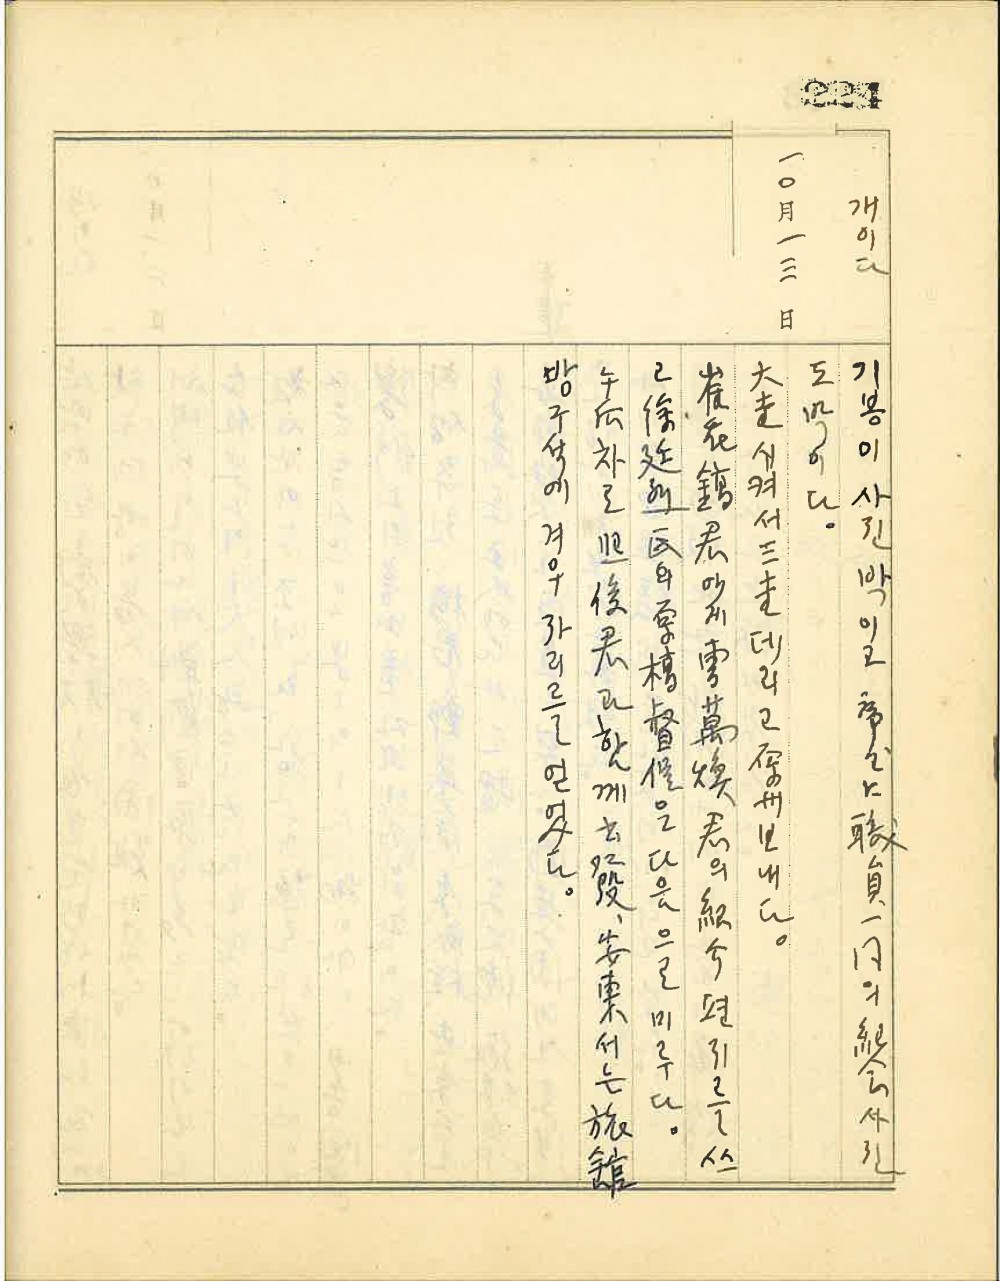 개이다
一〇月一三日
기봉이 사진 박일 兼 職員一同의 紀念사진
도 박이다.
大圭 시켜서 三圭 데리고 보내다.
崔在鎬君에게 萬煥君의 紹介 편지를 쓰
고 徐廷 氏와 原稿督促은 다음으로 미루다.
누어 차로 俊君과 함께 出發, 安東서는 旅館
방구석에 겨우 자리를 얻었다.